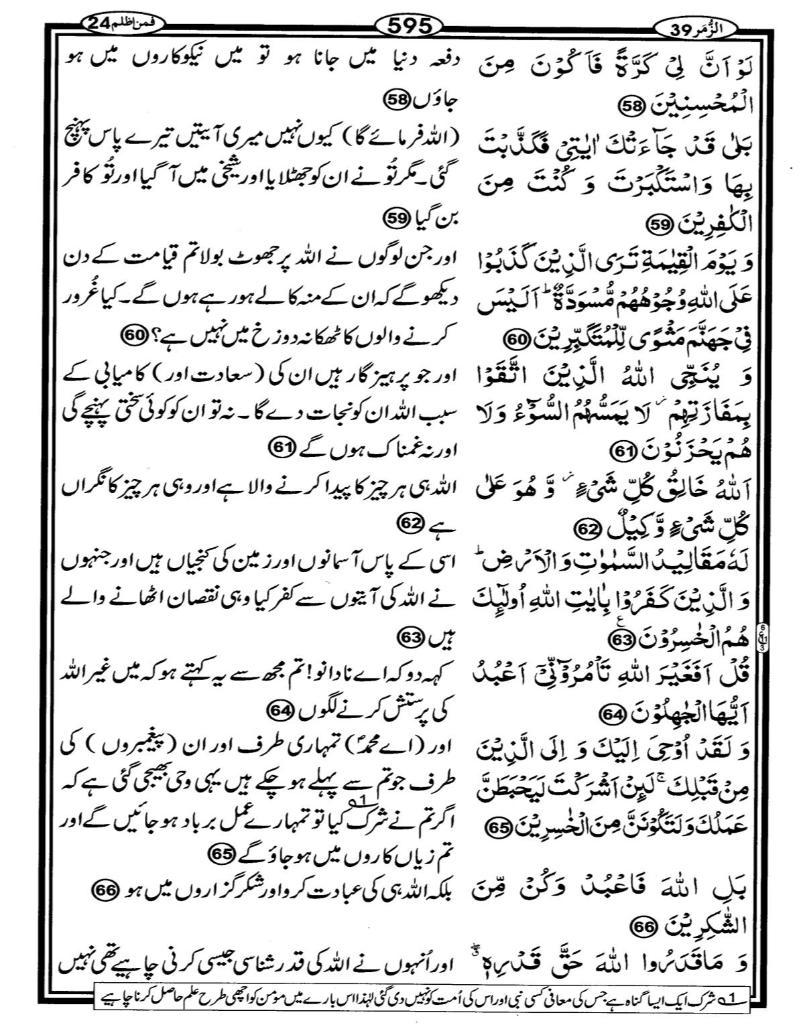 الزُّمَر 39
595
فمن اظلم 24
لَوۡ اَنَّ لِىۡ كَرَّةً فَاَكُوۡنَ مِنَ
الۡمُحۡسِنِيۡنَ 58
بَلٰى قَدۡ جَآءَتۡكَ اٰيٰتِىۡ فَكَذَّبۡتَ
بِهَا وَاسۡتَكۡبَرۡتَ وَ كُنۡتَ مِنَ
الۡكٰفِرِيۡنَ 59
وَ يَوۡمَ الۡقِيٰمَةِ تَرَى الَّذِيۡنَ كَذَبُوۡا
عَلَى اللّٰهِ وُجُوۡهُهُمۡ مُّسۡوَدَّةٌ ؕ اَلَيۡسَ
فِىۡ جَهَنَّمَ مَثۡوًى لِّلۡمُتَكَبِّرِيۡنَ 60
وَ يُنَجِّى اللّٰهُ الَّذِيۡنَ اتَّقَوۡا
بِمَفَازَتِهِمۡ لَا يَمَسُّهُمُ السُّوۡٓءُ وَلَا
هُمۡ يَحۡزَنُوۡنَ 61
اَللّٰهُ خَالِقُ كُلِّ شَىۡءٍ وَّ هُوَ عَلٰى
كُلِّ شَىۡءٍ وَّكِيۡلٌ 62
لَهٗ مَقَالِيۡدُ السَّمٰوٰتِ وَالۡاَرۡضِ ؕ
وَ الَّذِيۡنَ كَفَرُوۡا بِاٰيٰتِ اللّٰهِ اُولٰٓئِكَ
هُمُ الۡخٰسِرُوۡنَ 63
قُلۡ اَفَغَيۡرَ اللّٰهِ تَاۡمُرُوۡٓنِّىۡ اَعۡبُدُ
اَيُّهَا الۡجٰهِلُوۡنَ 64
وَ لَقَدۡ اُوۡحِىَ اِلَيۡكَ وَ اِلَى الَّذِيۡنَ
مِنۡ قَبۡلِكَ ۚ لَئِنۡ اَشۡرَكۡتَ لَيَحۡبَطَنَّ
عَمَلُكَ وَلَتَكُوۡنَنَّ مِنَ الۡخٰسِرِيۡنَ 65
بَلِ اللّٰهَ فَاعۡبُدۡ وَكُنۡ مِّنَ
الشّٰكِرِيۡنَ 66
وَ مَا قَدَرُوا اللّٰهَ حَقَّ قَدۡرِهٖ
دفعہ دنیا میں جانا ہو تو میں نیکوکاروں میں ہو
جاؤں 58
(اللہ فرمائے گا) کیوں نہیں میری آیتیں تیرے پاس پہنچ
گئی۔مگر تُو نے ان کو جھٹلایا اور شیخی میں آ گیا اور تُو کافر
بن گیا 59
اور جن لوگوں نے اللہ پر جھوٹ بولا تم قیامت کے دن
دیکھو گے کہ ان کے منہ کالے ہو رہے ہوں گے۔کیا غُرور
کرنے والوں کا ٹھکانہ دوزخ میں نہیں ہے؟ 60
اور جو پرہیزگار ہیں ان کی (سعادت اور) کامیابی کے
سبب اللہ ان کو نجات دے گا ۔ نہ تو ان کو کوئی سختی پہنچے گی
اور نہ غمناک ہوں گے 61
اللہ ہی ہر چیز کا پیدا کرنے والا ہے اور وہی ہر چیز کا نگراں
ہے 62
اسی کے پاس آسمانوں اور زمین کی کنجیاں ہیں اور جنہوں
نے اللہ کی آیتوں سے کفر کیا وہی نقصان اٹھانے والے
ہیں 63
کہہ دو کہ اے نادانو! تم مجھ سے یہ کہتے ہو کہ میں غیر اللہ
کی پرستش کرنے لگوں 64
اور (اے محمدؐ) تمہاری طرف اور ان (پیغمبروں) کی
طرف جو تم سے پہلے ہو چکے ہیں یہی وحی بھیجی گئی ہے کہ
اگر تم نے شرک 1 کیا تو تمہارے عمل برباد ہو جائیں گے اور
تم زیاں کاروں میں ہو جاؤ گے 65
بلکہ اللہ ہی کی عبادت کرو اور شکرگزاروں میں ہو 66
اور اُنہوں نے اللہ کی قدر شناسی جیسی کرنی چاہیے تھی نہیں
1 شرک ایک ایسا گناہ ہے جس کی معافی کسی نبی اور اس کی اُمت کو نہیں دی گئی لہٰذا اس بارے میں مومن کو اچھی طرح علم حاصل کرنا چاہیے